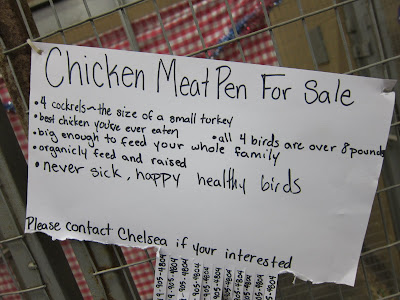 Chicken Meat Pen For Sale
• 4 cockrels ~ the size of a small turkey
• best chicken you've ever eaten
• all 4 birds are over 8 pounds
• big enough to feed your whole family
• organicly feed and raised
• never sick, happy healthy birds
Please contact Chelsea if your interested
9-905-4804
9-905-4804
905-4804
905-4804
905-4804
905-4804
905-4804
905-4804